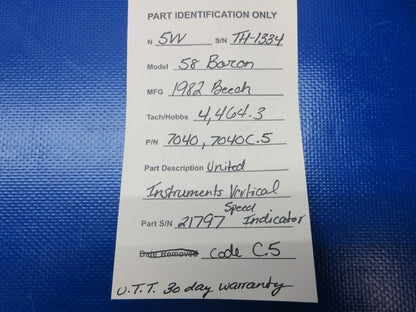 PART IDENTIFICATION ONLY
N 5VV S/N TH-1334
Model 58 Baron
MFG 1982 Beech
Tach/Hobbs 4,464.3
P/N 7040, 7040C.5
Part Description United
Instruments Vertical
Speed
Part S/N 21797 Indicator
Date Removed Code C.5
U.T.T. 30 day warranty